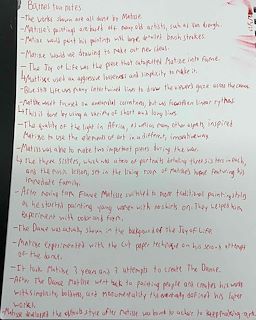 Barnes tour notes
- The works shown are all done by Matisse
- Matisse's paintings are based off many old artists, such as Van Gough.
- Matisse would paint his paintings with large detailed brush strokes.
- Matisse would use drawing to make out new ideas.
- The Joy of Life was the piece that catapulted Matisse into fame.
↳ Matisse used an aggressive looseness and simplicity to make it.
- Blue still life uses many intertwined lines to draw the viewer's gaze across the canvas
- Matisse wasn't focused on anatomical correctness, but was focused on linear rythms.
↳ This is done by using a variety of short and long lines.
- The quality of the light in Africa, as well as many other aspects, inspired
Matisse to use the elements of art in a different, innovative way.
- Matisse was able to make two important pieces during the war.
↳ The three sisters, which was a trio of portraits detailing three sisters in each,
and the music lesson, set in the living room of matisse's home featuring his
immediate family.
- After moving from France Matisse switched to more traditional painting styles
as he started painting young women with no shirts on. They helped him
experiment with color and form.
- The Dance was actually shown in the background of The Joy of Life
- Matisse experimented with the cut paper technique on his second attempt
of the dance.
- It took Matisse 3 years and 3 attempts to create The Dance.
- After The Dance Matisse went back to painting people and creates his works
with simplicity, boldness, and monumentality that eventually defined his later
works.
Matisse developed the cutouts style after matisse was bound to a chair to keep making art.